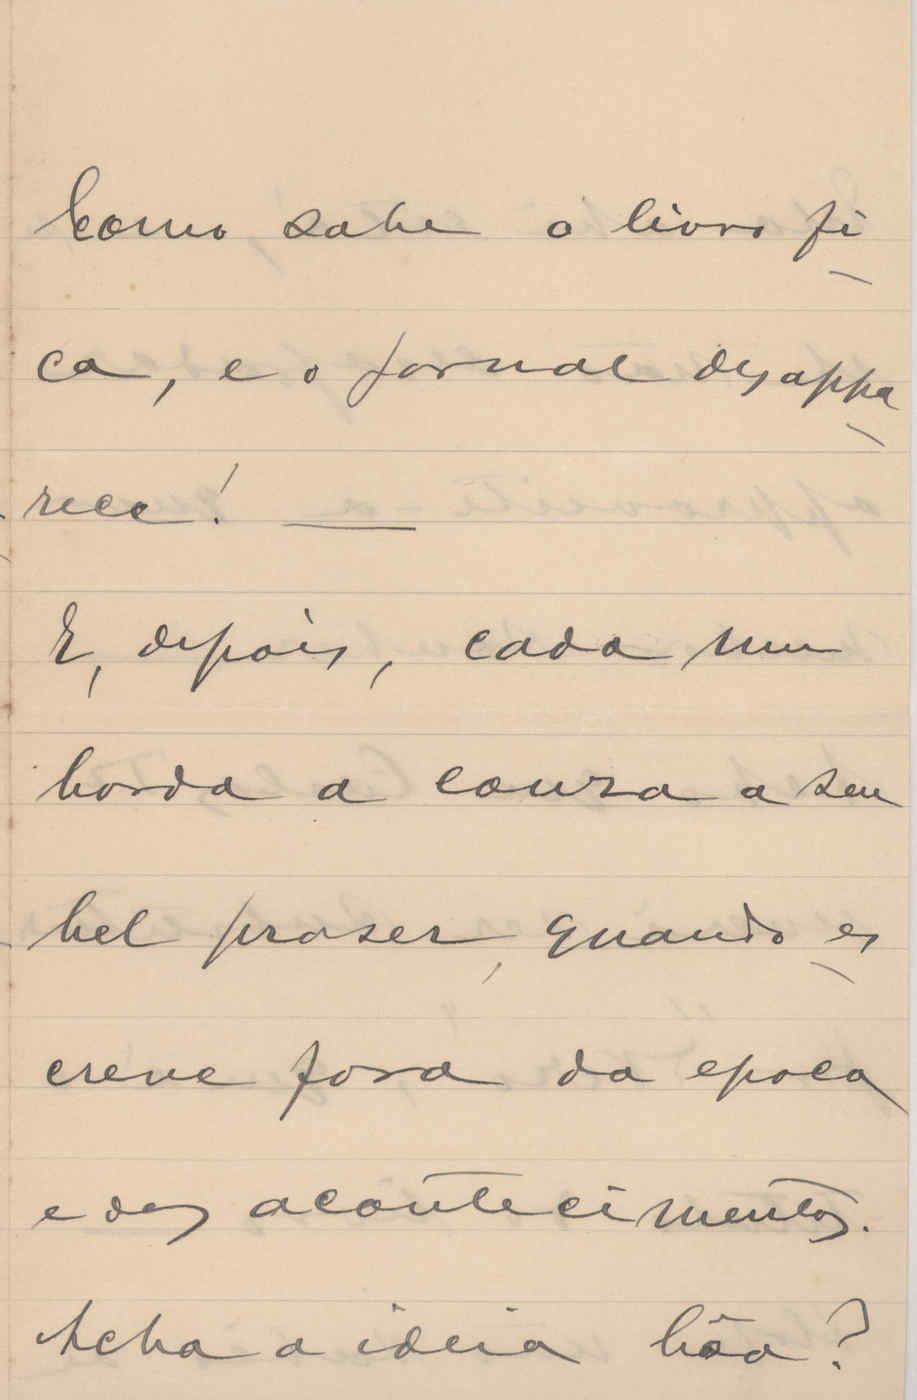 Como sabe o livro fi
ca, e o jornal desappa
rece! —
E, depois, cada um
borda a couza a seu
bel praser, quando es
creve fora da epoca
e dos acontecimentos.
Acha a ideia bôa?